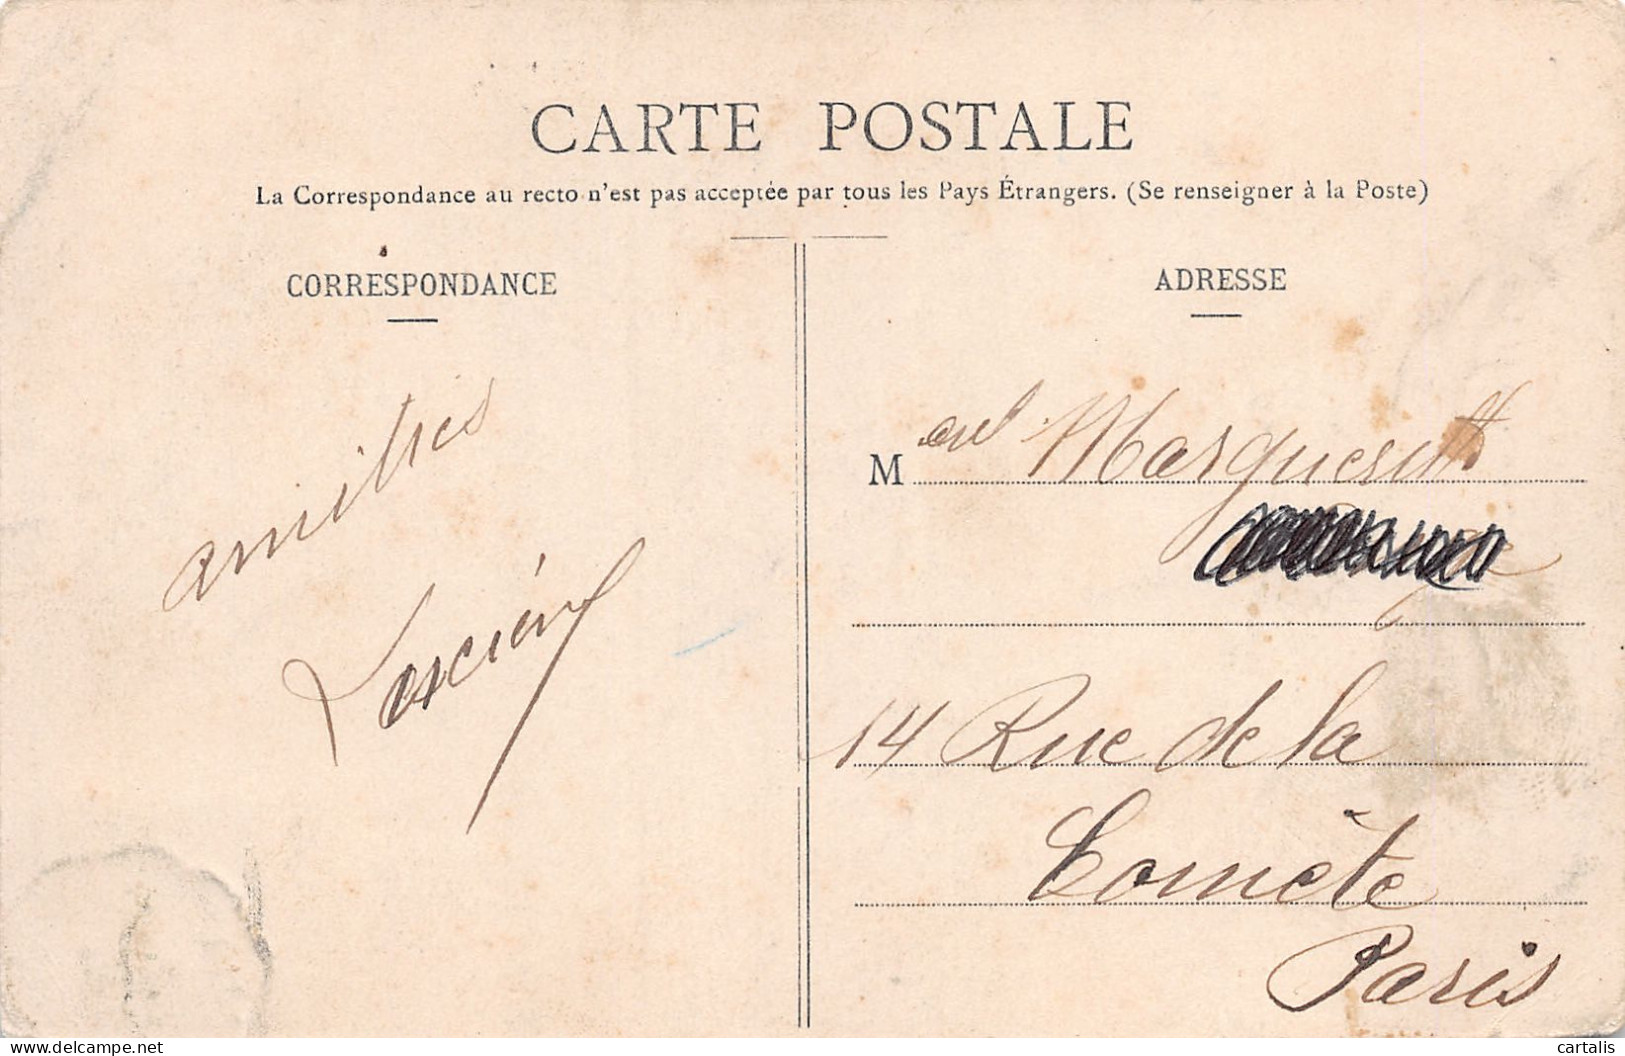 CARTE POSTALE
La Correspondance au recto n'est pas acceptée par tous les Pays Étrangers. (Se renseigner à la Poste)
CORRESPONDANCE
ADRESSE
amitiés
M
14 Rue de la
Comète
Paris
www.delcampe.net
cartalis